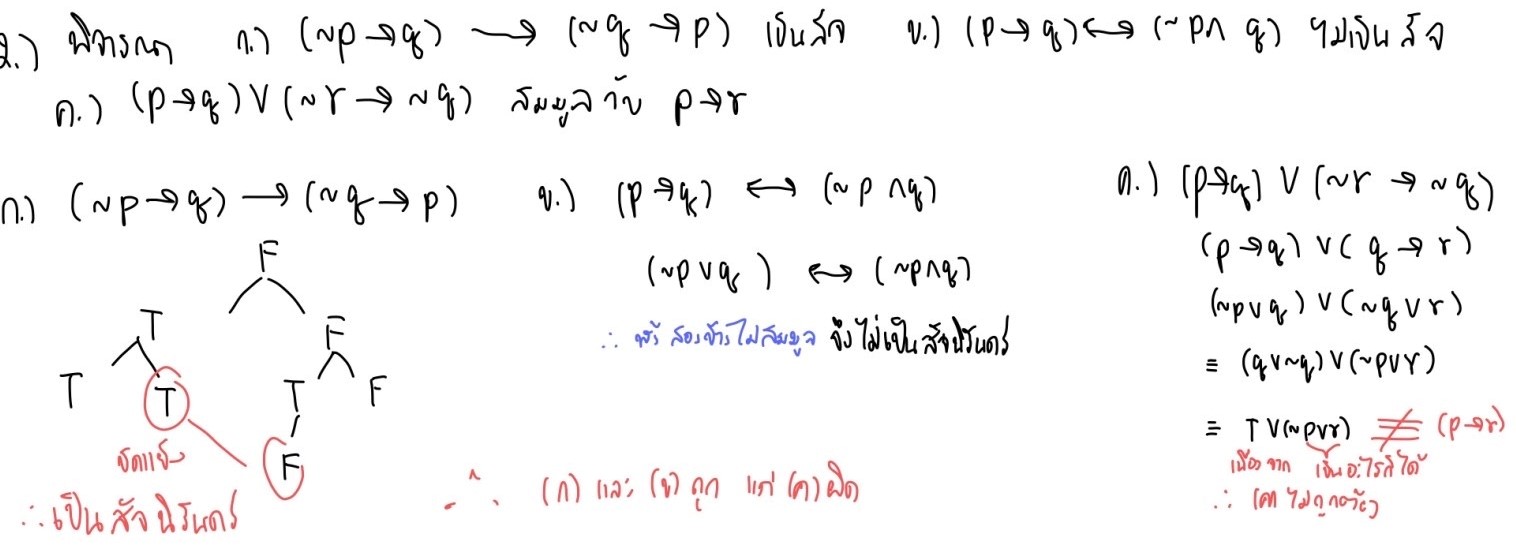 2.) พิจารณา ก.) (~p→q) → (~q→p) เป็นสัจ ข.) (p→q)↔(~p∧q) ไม่เป็นสัจ
ค.) (p→q)∨(~r→~q) สมมูลกับ p→r
ก.) (~p→q) → (~q→p)
F
T F
T T T F
F
ขัดแย้ง
∴ เป็นสัจนิรันดร์
ข.) (p→q) ↔ (~p∧q)
(~p∨q) ↔ (~p∧q)
∴ ทั้งสองข้างไม่สมมูล จึงไม่เป็นสัจนิรันดร์
ค.) (p→q) ∨ (~r→~q)
(p→q) ∨ (q→r)
(~p∨q) ∨ (~q∨r)
≡ (q∨~q)∨(~p∨r)
≡ T∨(~p∨r) ≢ (p→r)
เนื่องจาก เป็นอะไรก็ได้
∴ (ค) ไม่ถูกต้อง
∴ (ก) และ (ข) ถูก แต่ (ค) ผิด